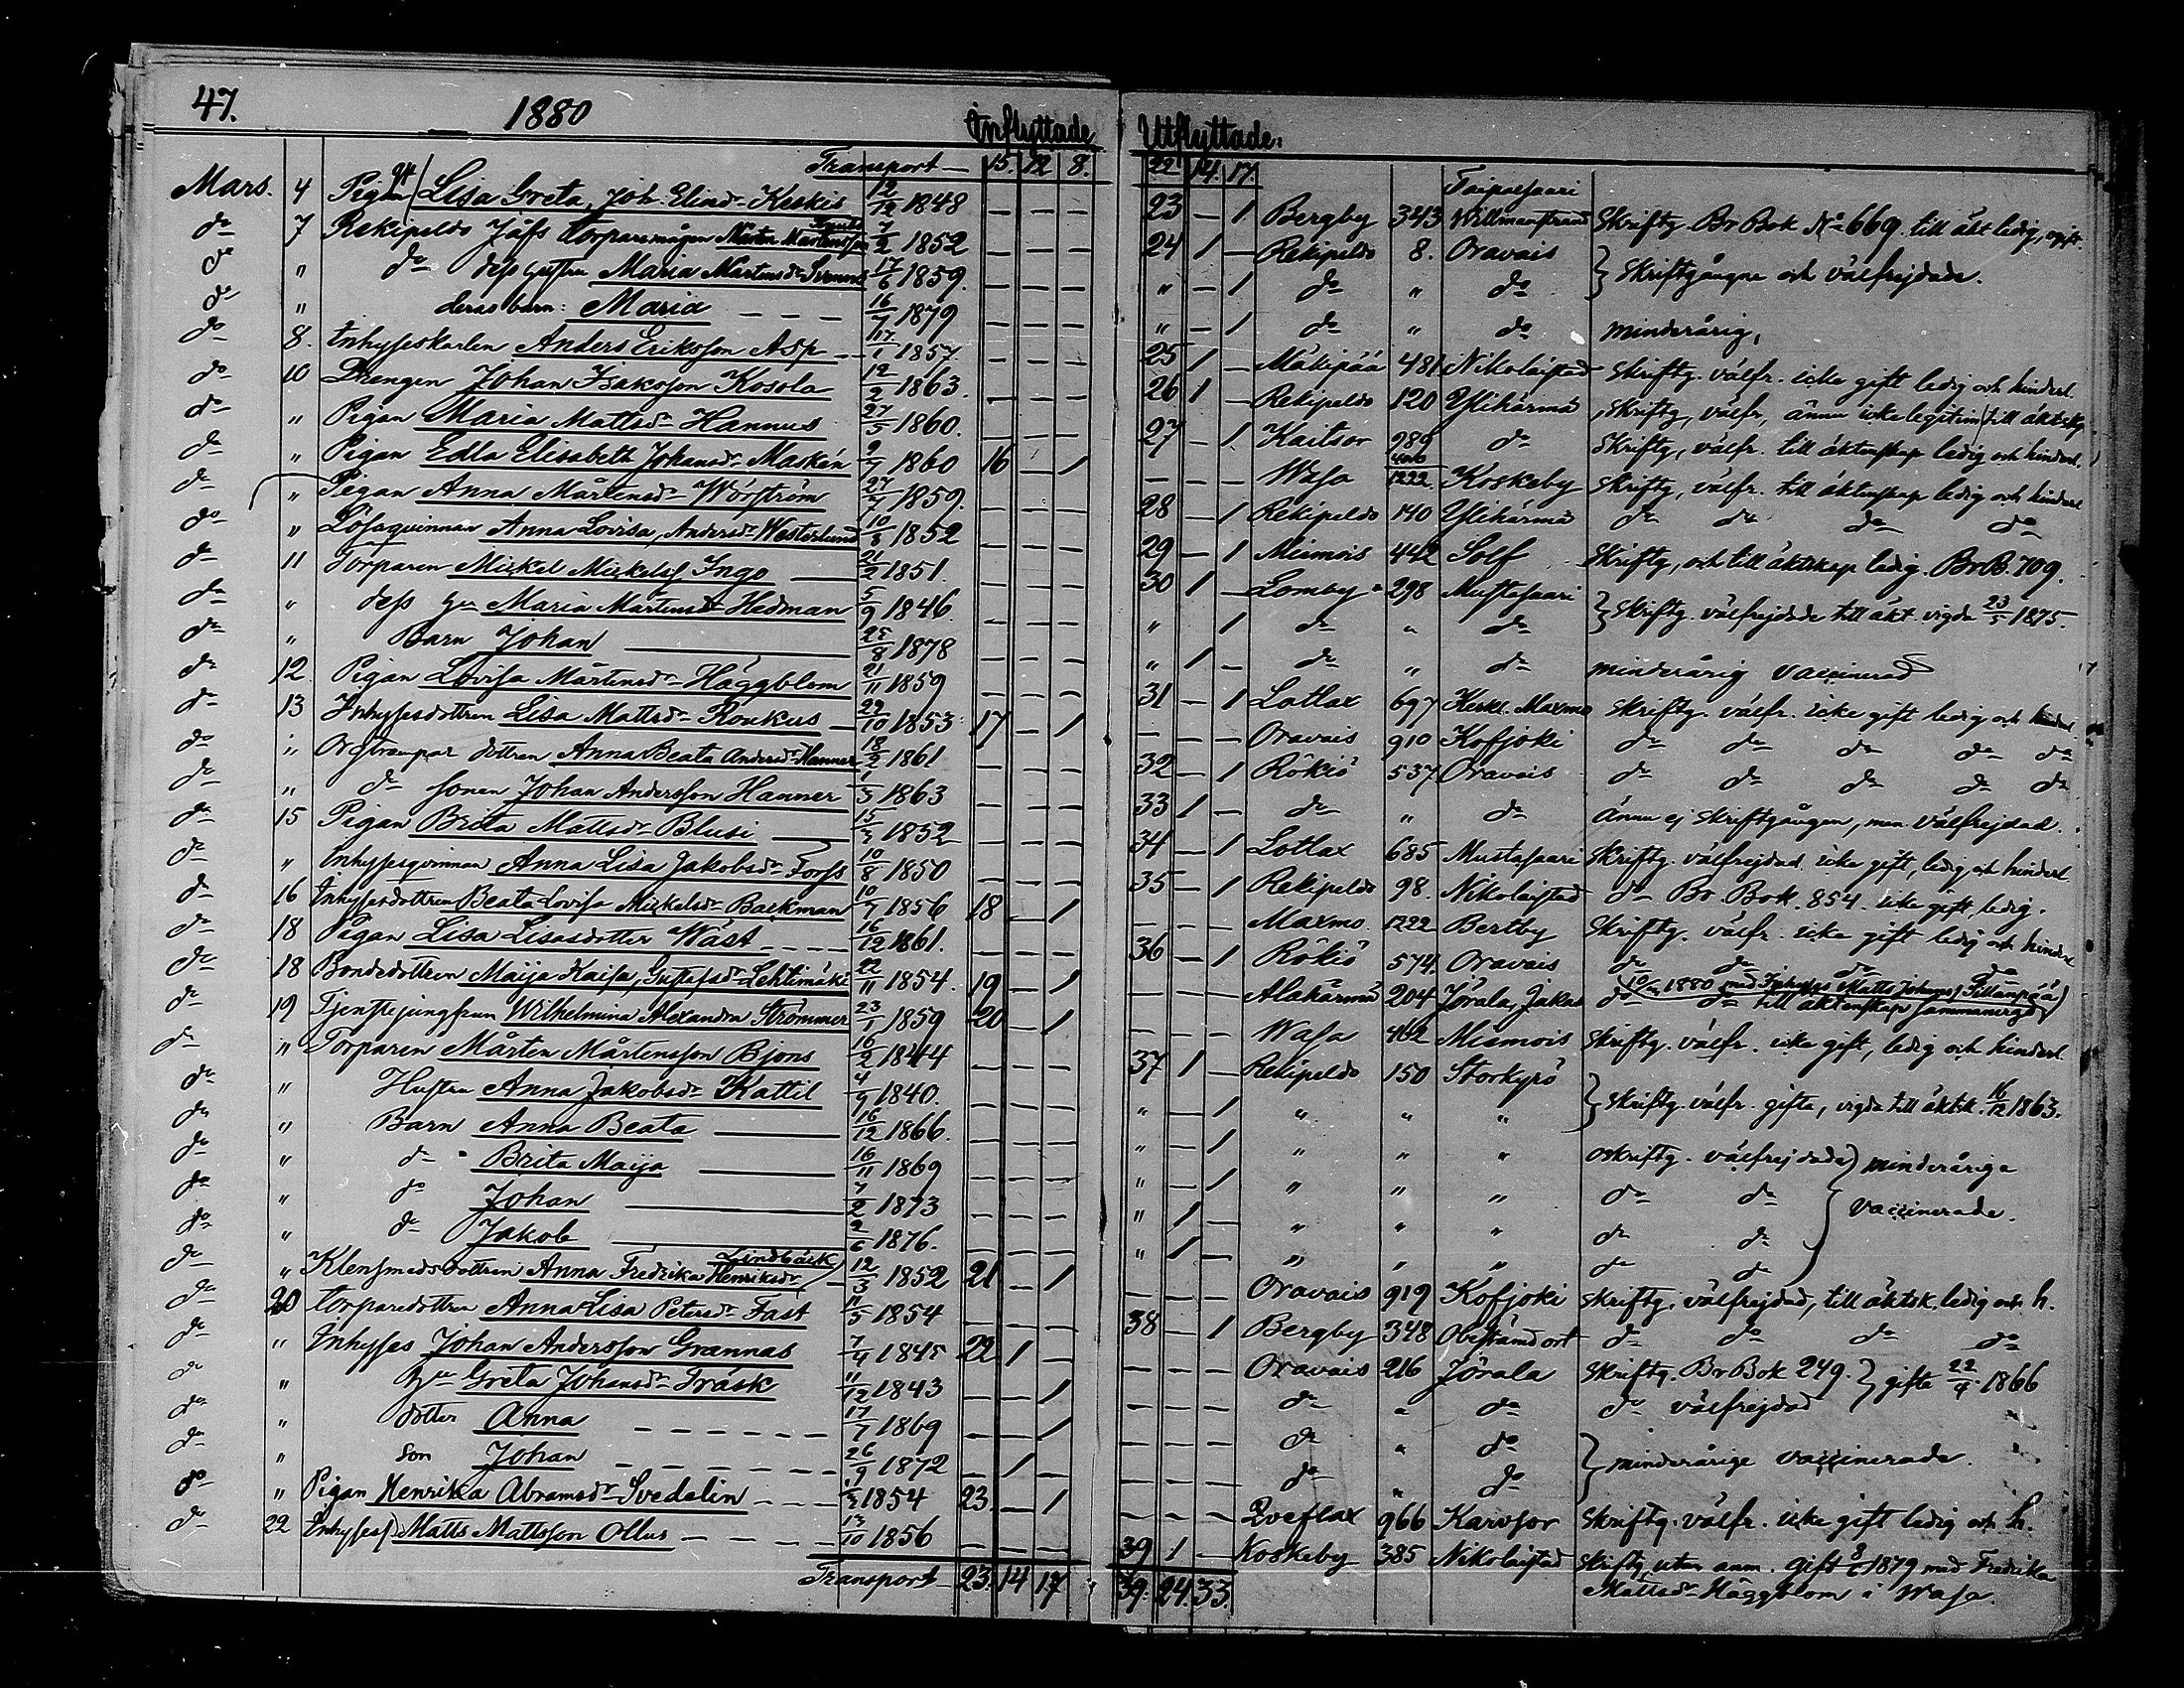 47. 1880 Inflyttade Utflyttade.
Transport — 15. 12 8. 22 14. 17.
Mars. 4 Pigan Lisa Greta, Joh. Elind. Keskis 12/12 1848 — — — 23 — 1 Bergby 343 Taipalsaari Willmanstrand Skriftg. Br Bok No 669. till äkt ledig,
do 7 Rekipeldo Jåfs torparemågen Mårten Mårtensson 7/2 1852 — — — 24 1 — Rekipeldo 8. Oravais } Skriftgångne och välfrejdade.
do " do dess hustru Maria Mårtensdr 17/6 1859. — — — " — 1 do " do
do " deras barn: Maria — — — 16/7 1879 — — — " — 1 do " do minderårig,
do 8. Inhyseskarlen Anders Eriksson Asp — 17/1 1857. — — — 25 1 — Mäkipää 481 Nikolaistad Skriftg. välfr. icke gift ledig och hinderl.
do 10 Drengen Johan Isaksson Kosola 12/2 1863. — — — 26 1 — Rekipeldo 120 Ylihärmä Skriftg, välfr, ännu icke legitim till äktskp
do " Pigan Maria Mattsdr Hannus 27/5 1860. — — — 27 — 1 Kaitsor 989 do Skriftg, välfr. till äktenskap ledig och hinderl.
do " Pigan Edla Elisabeth Johansdr Maskén 9/7 1860 16 — 1 — — — Wasa 1222. Koskeby Skriftg, välfr. till äktenskap ledig och hinderl
do " Pigan Anna Mårtensdr Wörström 27/7 1859. — — — 28 — 1 Rekipeldo 140 Ylihärmä do do do do
do " Lösaqvinnan Anna Lovisa, Andersdr Westerlund 10/8 1852 — — — 29 — 1 Miemois 442 Solf Skriftg, och till äktskap ledig. BrB. 709.
do 11 Torparen Mickel Mickelss Ingo — 21/2 1851. — — — 30 1 — Lomby 298 Mustasaari } Skriftg. välfrejdade till äkt. vigda 23/5 1875.
do " dess hu Maria Mårtensdr Hedman 5/9 1846. — — — " 1 do " do
do " Barn Johan — 25/8 1878 — — — " 1 — do " do minderårig vaccinerad
do 12. Pigan Lovisa Mårtensdr Häggblom 21/11 1859 — — — 31 — 1 Lotlax 697 Maxmo Skriftg. välfr. icke gift ledig och hinderl.
do 13 Inhysesdottren Lisa Mattsdr Roukus — 29/10 1853 17 — 1 — — — Oravais 910 Kofjoki do do do do do
do " dottren Anna Beata Andersdr Hanner 18/2 1861 — — — 32 — 1 Rökiö 537 Oravais do do do do do
do " do sonen Johan Andersson Hanner 1/5 1863 — — — 33 1 — do " do Ännu ej skriftgången, men välfrejdad.
do 15 Pigan Brita Mattsdr Blusi — 15/7 1852 — — — 34 — 1 Lotlax 685 Mustasaari Skriftg. välfrejdad icke gift, ledig och hinderl
do " Inhysesqvinnan Anna Lisa Jakobsdr Forss 10/8 1850 — — — 35 — 1 Rekipeldo 98. Nikolaistad do Br Bok. 854. icke gift, ledig.
do 16 Inhysesdottren Beata Lovisa Mickelsdr Backman 10/7 1856 18 — 1 — — — Maxmo 1222 Bertby Skriftg. välfr. icke gift ledig och hinderl
do 18 Pigan Lisa Lisasdotter Wäst — — — 16/12 1861. — — — 36 — 1 Rökiö 574. Oravais do do do do
do 18 Bondedottren Maija Kaisa, Gustafsdr Lehtimäki 22/11 1854. 19 — 1 — — — Alahärmä 204 Jörala, do do 1880 med Inhyses Matts Johanss till äktenskap sammanvigd
do 19 Tjenstejungfrun Wilhelmina Alexandra Strömmer 23/1 1859 20 — 1 — — — Wasa 462 Miemois Skriftg. välfr. icke gift, ledig och hinderl.
do " Torparen Mårten Mårtensson Bjons 16/2 1844 — — — 37 1 — Rekipeldo 150 Storkyrö } Skriftg. välfr. gifta, vigda till äktsk. 16/12 1863.
do " Hustru Anna Jakobsdr Kattil 4/9 1840. — — — " — 1 " " "
do " Barn Anna Beata — 16/12 1866. — — — " — 1 " " " oskriftg. välfrejdade) minderåriga
do " do Brita Maija — 16/11 1869 — — — " — 1 " " " do do
do " do Johan — 7/2 1873 — — — " 1 — " " " do do } vaccinerade.
do " do Jakob — 2/6 1876. — — — " 1 — " " " do do
do " Klensmedsdottren Anna Fredrika Henriksdr Lindbäck — 12/3 1852 21 — 1 — — — Oravais 919 Kofjoki Skriftg. välfrejdad, till äktsk. ledig och h.
do 20 Torparedottren Anna Lisa Petersdr Fast 11/5 1854 — — — 38 — 1 Bergby 348 Obestämd ort do do do do
do " Inhyses Johan Andersson Grannas 7/4 1845 22. 1 — — — — Oravais 216 Jörala Skriftg. Br Bok 249. } gifta 22/4 1866
do " hu Greta Johansdr Träsk 11/12 1843 — — 1 — — — do " do do välfrejdad
do " dotter Anna — — — — — — 17/7 1869 — — 1 — — — do " do } minderårige vaccinerade.
do " Son Johan — — — — — — 26/9 1872 — 1 — — — — do " do
do " Pigan Henrika Abramsdr Svedelin — — — 1854 23. — 1 — — — Qveflax 966 Karvsor Skriftg. välfr. icke gift ledig och h.
do 22 Inhyses Matts Mattsson Ollus — — — — 13/10 1856 — — — 39 1 — Koskeby 385 Nikolaistad Skriftg, utan anm. Gift 8/6 1879 med Fredrika
Mattsdr Häggblom i Wasa.
Transport — 23. 14 17 39. 24. 33.